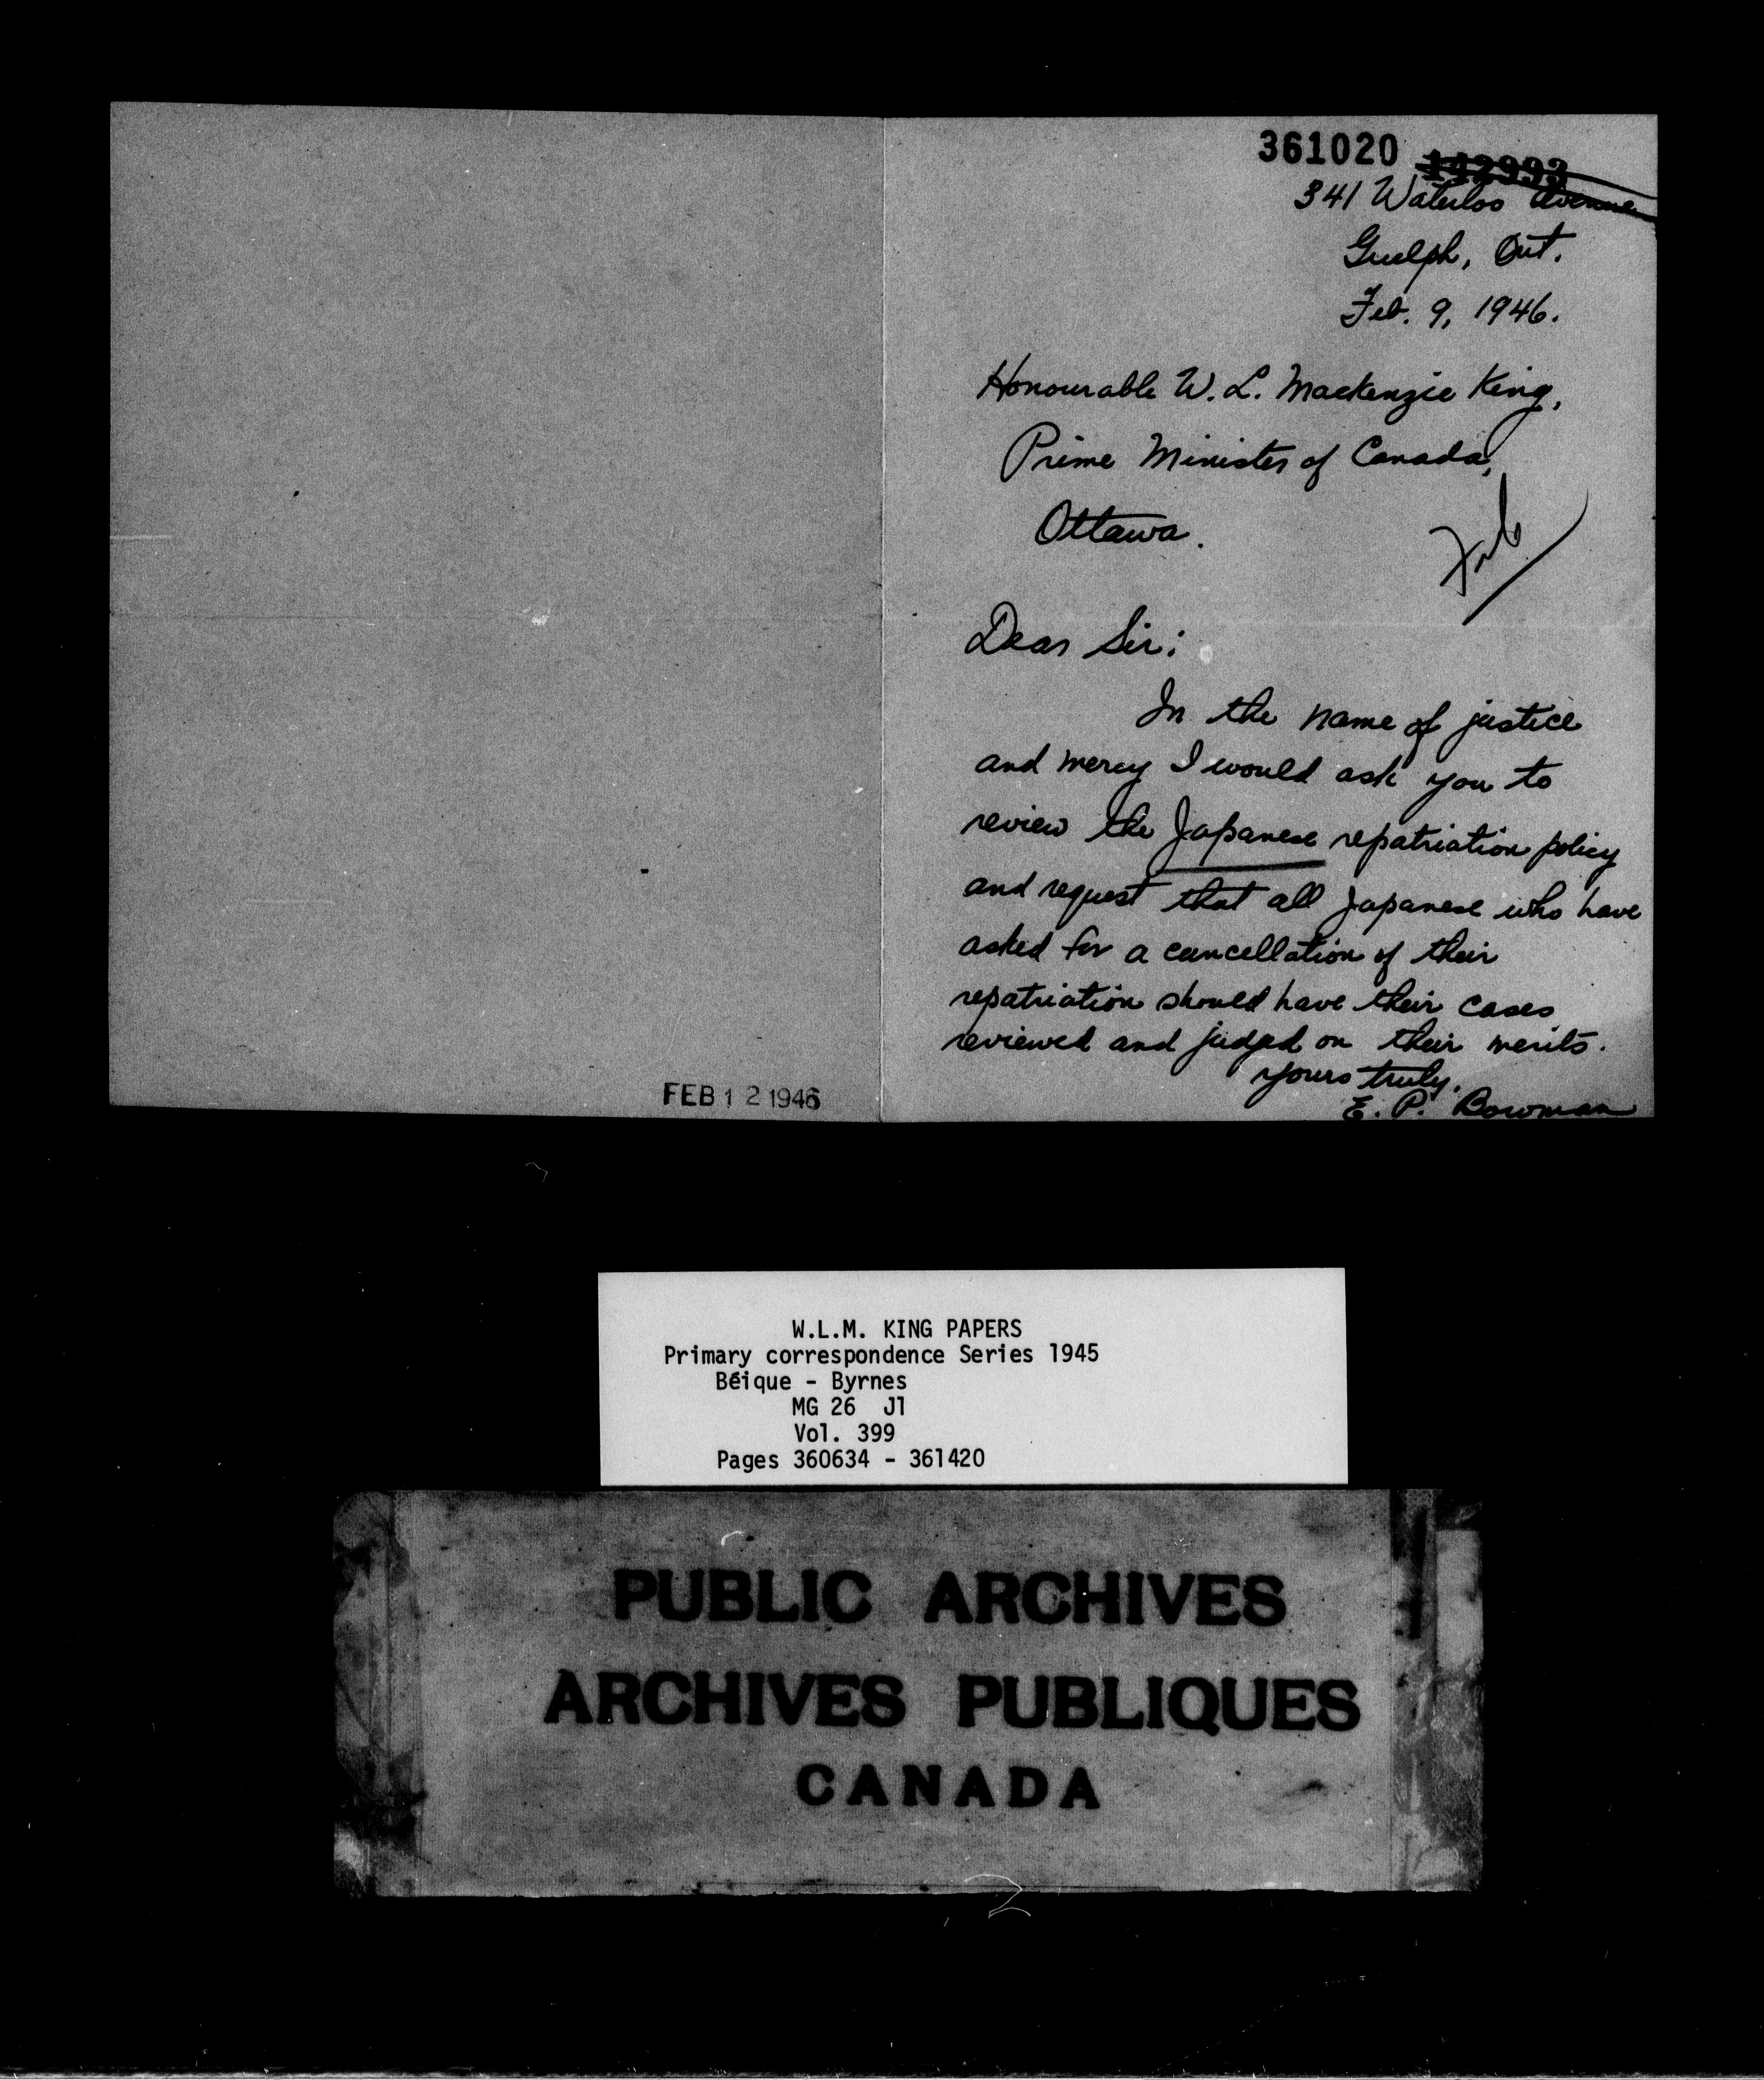 361020 142993
341 Waterloo Avenue
Guelph, Ont.
Feb. 9, 1946.
Honourable W. L. Mackenzie King,
Prime Minister of Canada,
Ottawa.
Dear Sir:
In the name of justice
and mercy I would ask you to
review the Japanese repatriation policy
and request that all Japanese who have
asked for a cancellation of their
repatriation should have their cases
reviewed and judged on their merits.
Yours truly,
E. P. Bowman
FEB 12 1946
W.L.M. KING PAPERS
Primary correspondence Series 1945
Béique - Byrnes
MG 26 J1
Vol. 399
Pages 360634 - 361420
PUBLIC ARCHIVES
ARCHIVES PUBLIQUES
CANADA